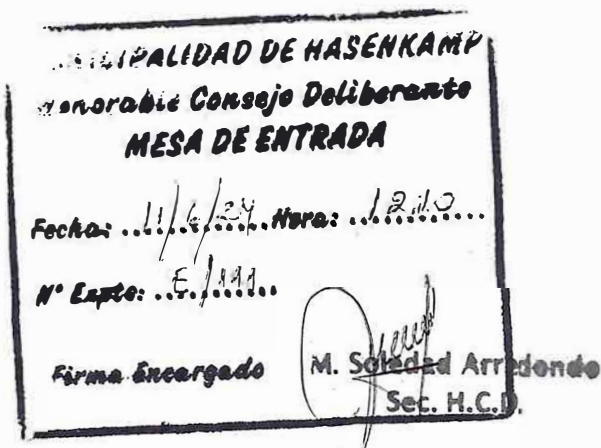 MUNICIPALIDAD DE HASENKAMP
Honorable Consejo Deliberante
MESA DE ENTRADA
Fecha: ..11/6/24..Hora: ...12.10.....
N° Expte: ...E/111.....
Firma Encargado
M. Soledad Arredondo
Sec. H.C.D.